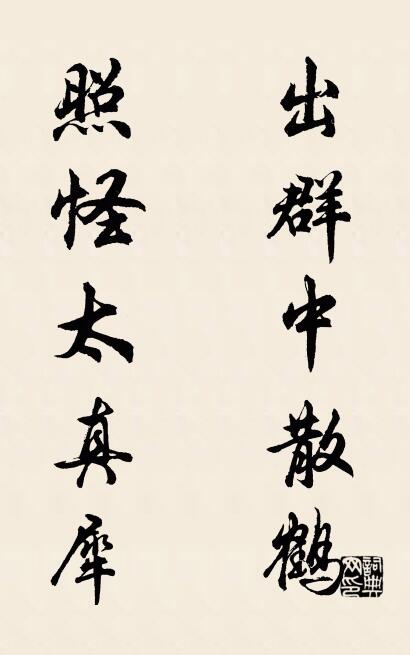 出群中散鶴
照怪太真犀
詞典网印